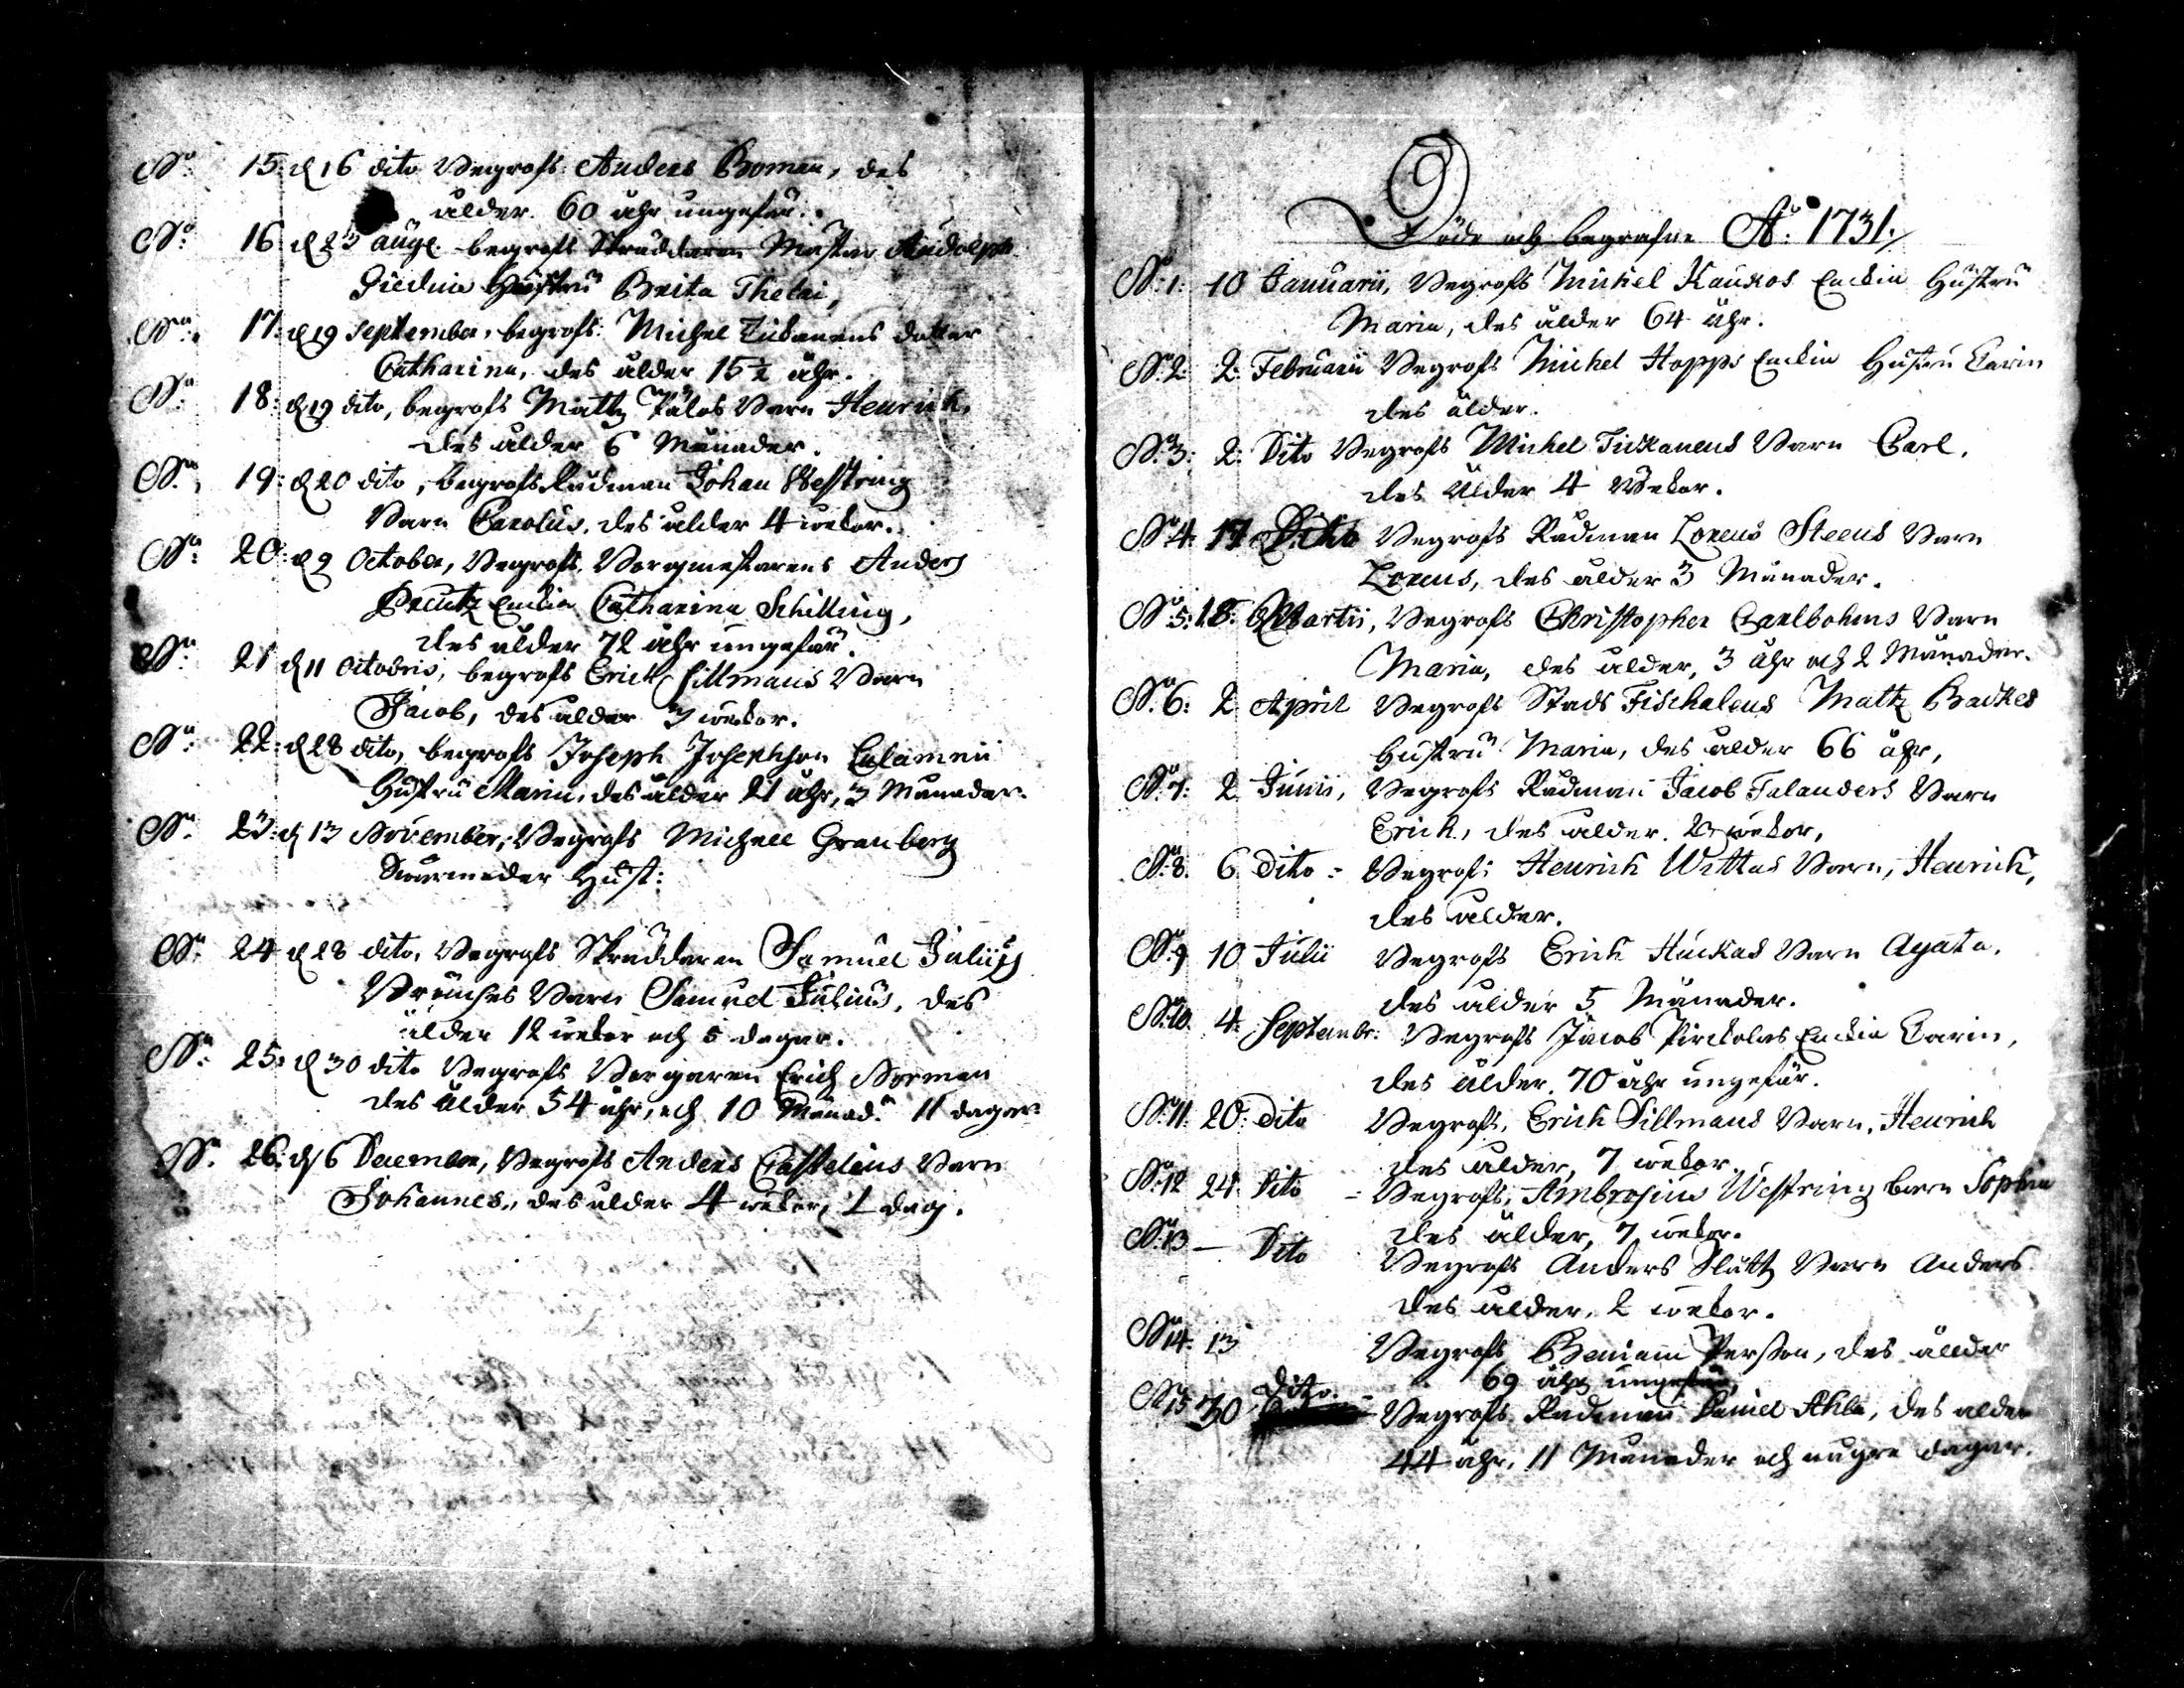 No: 15: d 16 dito Begrofs Anders Boman, des
ålder 60 åhr ungefär.
No: 16: d 23 aug. begrofs Skräddaren Mäster Rudolph
Hustru Brita Thelai,
No: 17: d 19 September, begrofs: Michel Tickanens dotter
Catharina, des ålder 15½ åhr.
No: 18: d 19 dito, begrofs Mattz Pålos Barn Henrich,
des ålder 6 Månader.
No: 19: d 20 dito, begrofs Rådman Johan Westring
Barn Carolus, des ålder 4 wekor.
No: 20: d 9 October, Begrofs Borgmestarens Anders
Enckia Catharina Schilling,
des ålder 72 åhr ungefär.
No: 21 d 11 Octobris, begrofs Erich Sillmans Barn
Jacob, des ålder 3 wekor.
No: 22: d 28 dito, begrofs Joseph Josephson Calamnii
Hustru Maria, des ålder 21 åhr, 3 Månader.
No: 23: d 13 November, Begrofs Michell Granberg
Swärmoder Hust:
No: 24 d 28 dito, Begrofs Skräddaren Samuel Julius
Barn Samuel Julius, des
ålder 12 wekor och 5 dagar.
No: 25: d 30 dito Begrofs Borgaren Erich Norman
des ålder 54 åhr, och 10 Månad. 11 dagar
No: 26: d 6 December, Begrofs Anders Castelius Barn
Johannes, des ålder 4 wekor, 1 dag.
Döde och begrafne Ao: 1731.
No: 1: 10 Januarii, Begrofs Michel Kaukos Enckia Hustru
Maria, des ålder 64 åhr.
No: 2: 2: Februarii Begrofs Michel Hopps Enckia Hustru Carin
des ålder.
No: 3: 2: Dito Begrofs Michel Tickanens Barn Carl,
des ålder 4 Wekor.
No: 4: 17 Dito Begrofs Rådman Lorens Steens Barn
Lorens, des ålder 3 Månader.
No: 5: 18: Martii, Begrofs Christopher Carlbohms Barn
Maria, des ålder, 3 åhr och 2 Månader.
No: 6: 2 April Begrofs Stads Fischalens Mattz Backes
Hustru Maria, des ålder 66 åhr,
No: 7: 2 Junii, Begrofs Rådman Jacob Falanders Barn
Erich, des ålder. wekor,
No: 8. 6 Dito = Begrofs Henrich Wittas Barn, Henrich,
des ålder.
No: 9 10 Julii Begrofs Erich Huckas Barn Agata,
des ålder 5 Månader.
No: 10. 4: Septembr: Begrofs Jacob Pirckolas Enckia Carin,
des ålder 70 åhr ungefär.
No: 11: 20: Dito Begrofs, Erich Sillmans Barn, Henrich
des ålder, 7 wekor
No: 12 24: Dito = Begrofs, Ambrosius Westring barn Sophia
des ålder, 7 wekor.
No: 13 — Dito Begrofs Anders Slått Barn Anders
des ålder, 2 wekor.
No: 14: 13 Begrofs Beniam Perßon, des ålder
69 åhr ungefär
No: 15 30 Dito. Begrofs Rådman Daniel Ahla, des ålder
44 åhr, 11 Månader och några dagar.